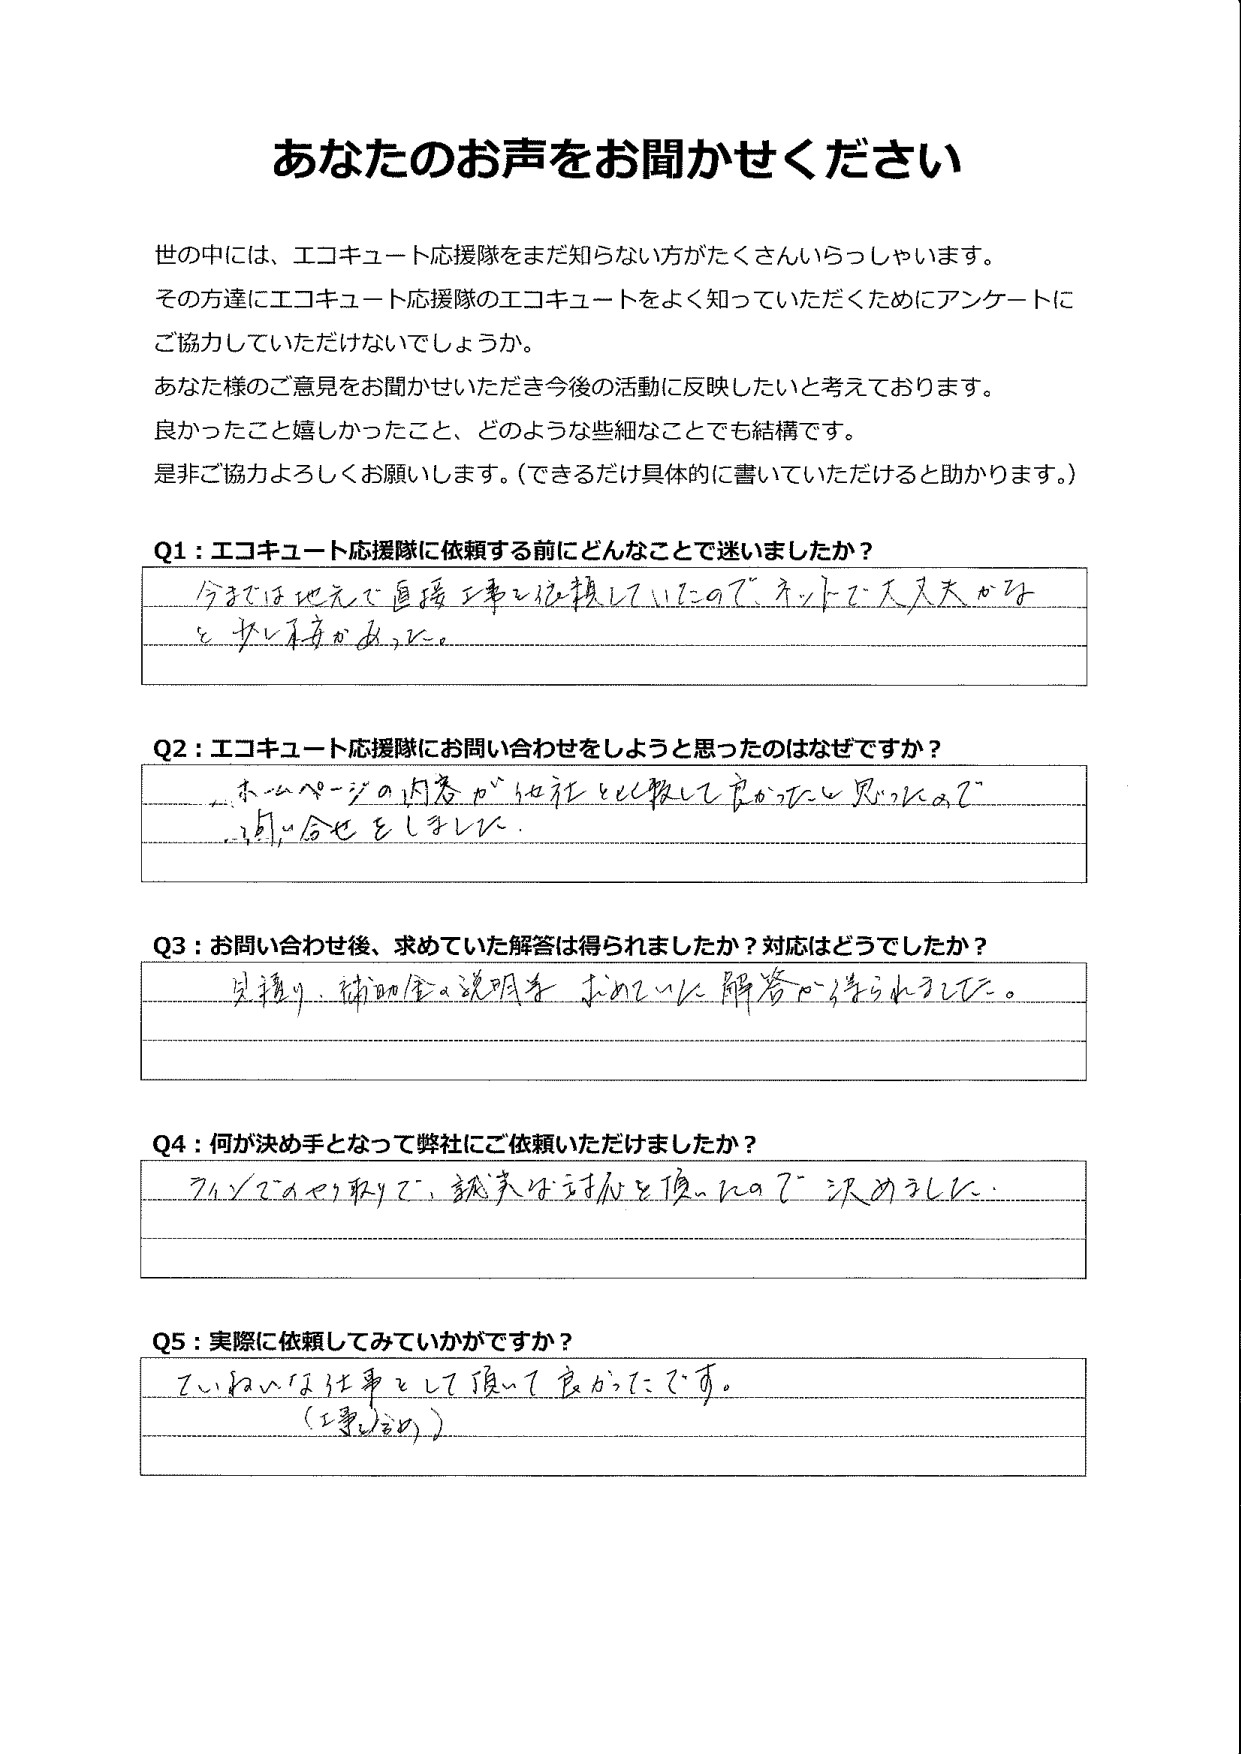 あなたのお声をお聞かせください
世の中には、エコキュート応援隊をまだ知らない方がたくさんいらっしゃいます。
その方達にエコキュート応援隊のエコキュートをよく知っていただくためにアンケートに
ご協力していただけないでしょうか。
あなた様のご意見をお聞かせいただき今後の活動に反映したいと考えております。
良かったこと嬉しかったこと、どのような些細なことでも結構です。
是非ご協力よろしくお願いします。（できるだけ具体的に書いていただけると助かります。）
Q1：エコキュート応援隊に依頼する前にどんなことで迷いましたか？
今までは地元で直接工事を依頼していたので、ネットで大丈夫かな
と少し不安があった。
Q2：エコキュート応援隊にお問い合わせをしようと思ったのはなぜですか？
ホームページの内容が他社と比較して良かったと思ったので
問い合せをしました.
Q3：お問い合わせ後、求めていた解答は得られましたか？対応はどうでしたか？
見積り、補助金の説明等 求めていた解答が得られました。
Q4：何が決め手となって弊社にご依頼いただけましたか？
ラインでのやり取りで、誠実な対応を頂いたので決めました.
Q5：実際に依頼してみていかがですか？
ていねいな仕事をして頂いて良かったです。
（工事も含め）